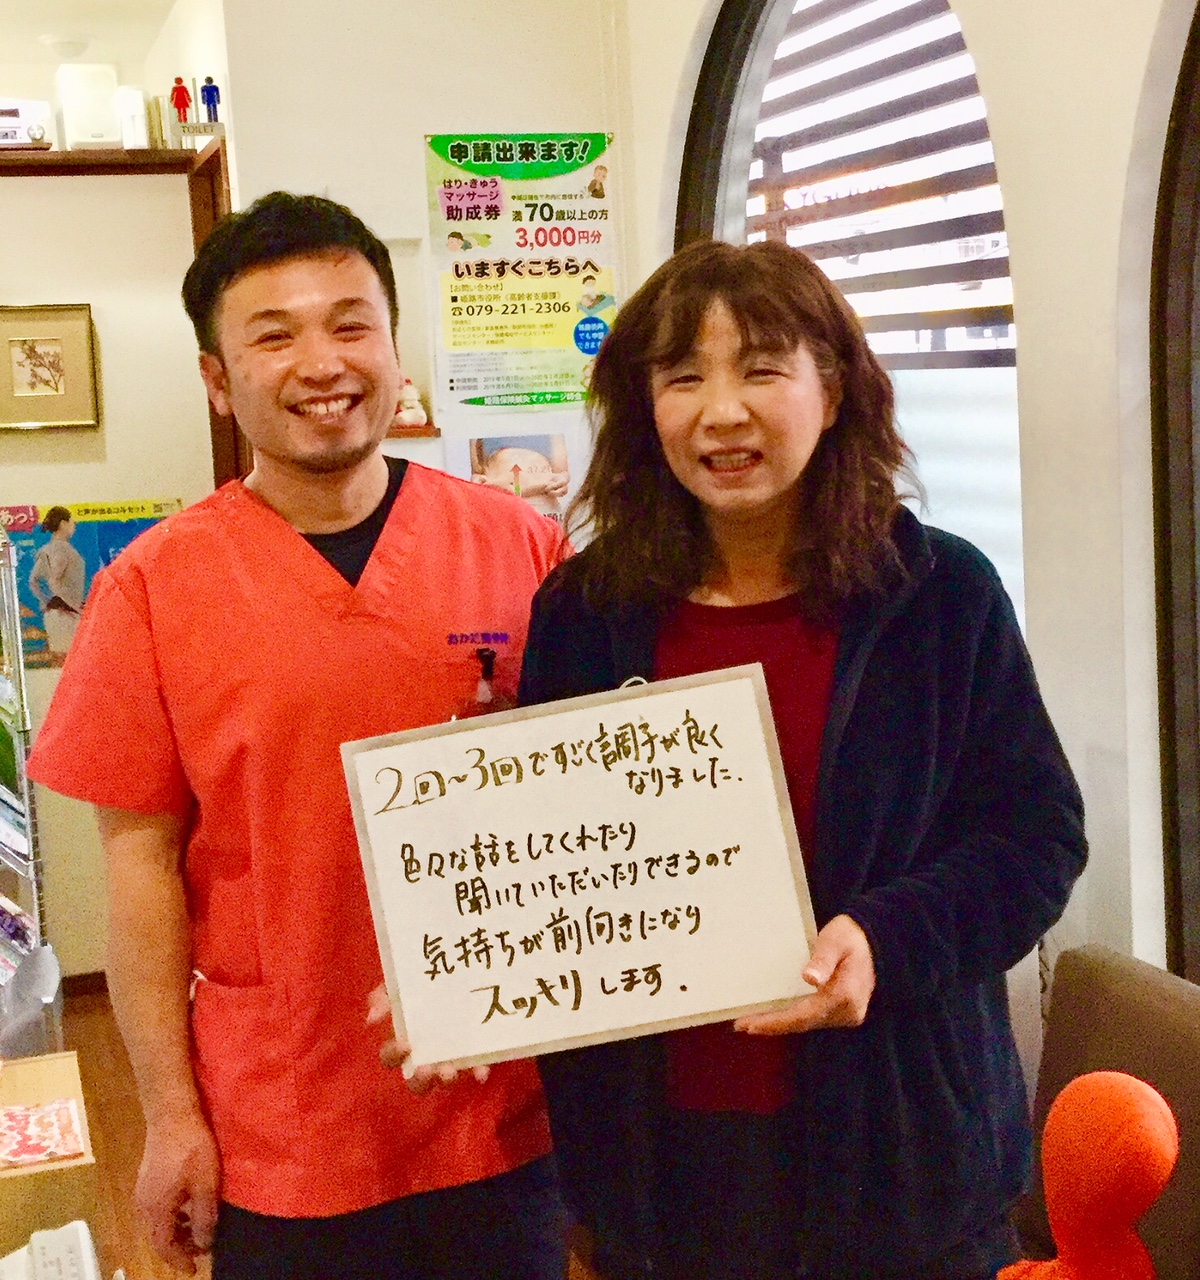 TOILET
申請出来ます!
はり・きゅう
マッサージ
助成券
満70歳以上の方
3,000円分
いますぐこちらへ
【お問い合わせ】
■姫路市役所(高齢者支援課)
☎079-221-2306
でも申請
できます
姫路保険鍼灸マッサージ師会
37.2
あっ!
と声が出るコルセット
おかだ整骨院
2回〜3回ですごく調子が良く
なりました.
色々な話をしてくれたり
聞いていただいたりできるので
気持ちが前向きになり
スッキリします.